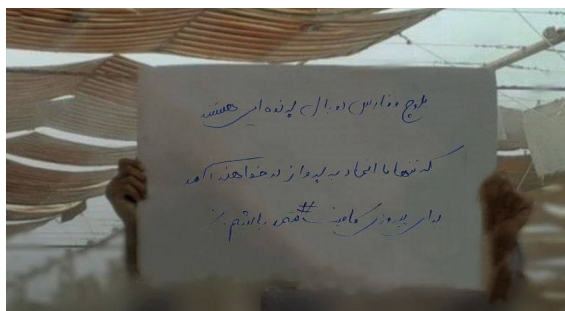 بلوچ و فارس دو بال پرنده ایی هستند
که تنها با اتحاد به پرواز در خواهند آمد
برای پیروزی کافیست #متحد باشیم